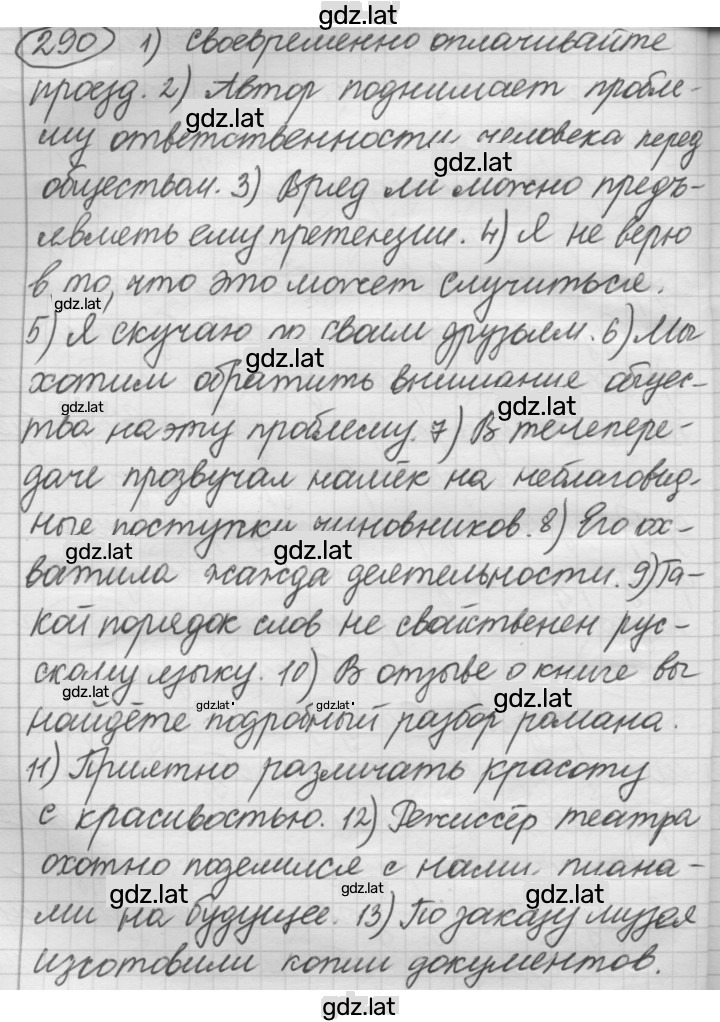 gdz.lat
290 1) Своевременно оплачивайте
проезд. 2) Автор поднимает пробле-
gdz.lat
му ответственности человека перед
gdz.lat
обществом. 3) Вряд ли можно предъ-
являть ему претензии. 4) Я не верю
в то, что это может случиться.
gdz.lat
5) Я скучаю по своим друзьям. 6) Мы
gdz.lat
хотим обратить внимание общес-
gdz.lat gdz.lat
тва на эту проблему. 7) В телепере-
даче прозвучал намёк на неблаговид-
ные поступки чиновников. 8) Его ох-
gdz.lat gdz.lat
ватила жажда деятельности. 9) Та-
кой порядок слов не свойственен рус-
скому языку. 10) В отзыве о книге вы
gdz.lat gdz.lat gdz.lat gdz.lat
найдёте подробный разбор романа.
11) Приятно различать красоту
с красивостью. 12) Режиссёр театра
охотно поделился с нами плана-
gdz.lat gdz.lat gdz.lat
ми на будущее. 13) По заказу музея
изготовили копии документов.
gdz.lat